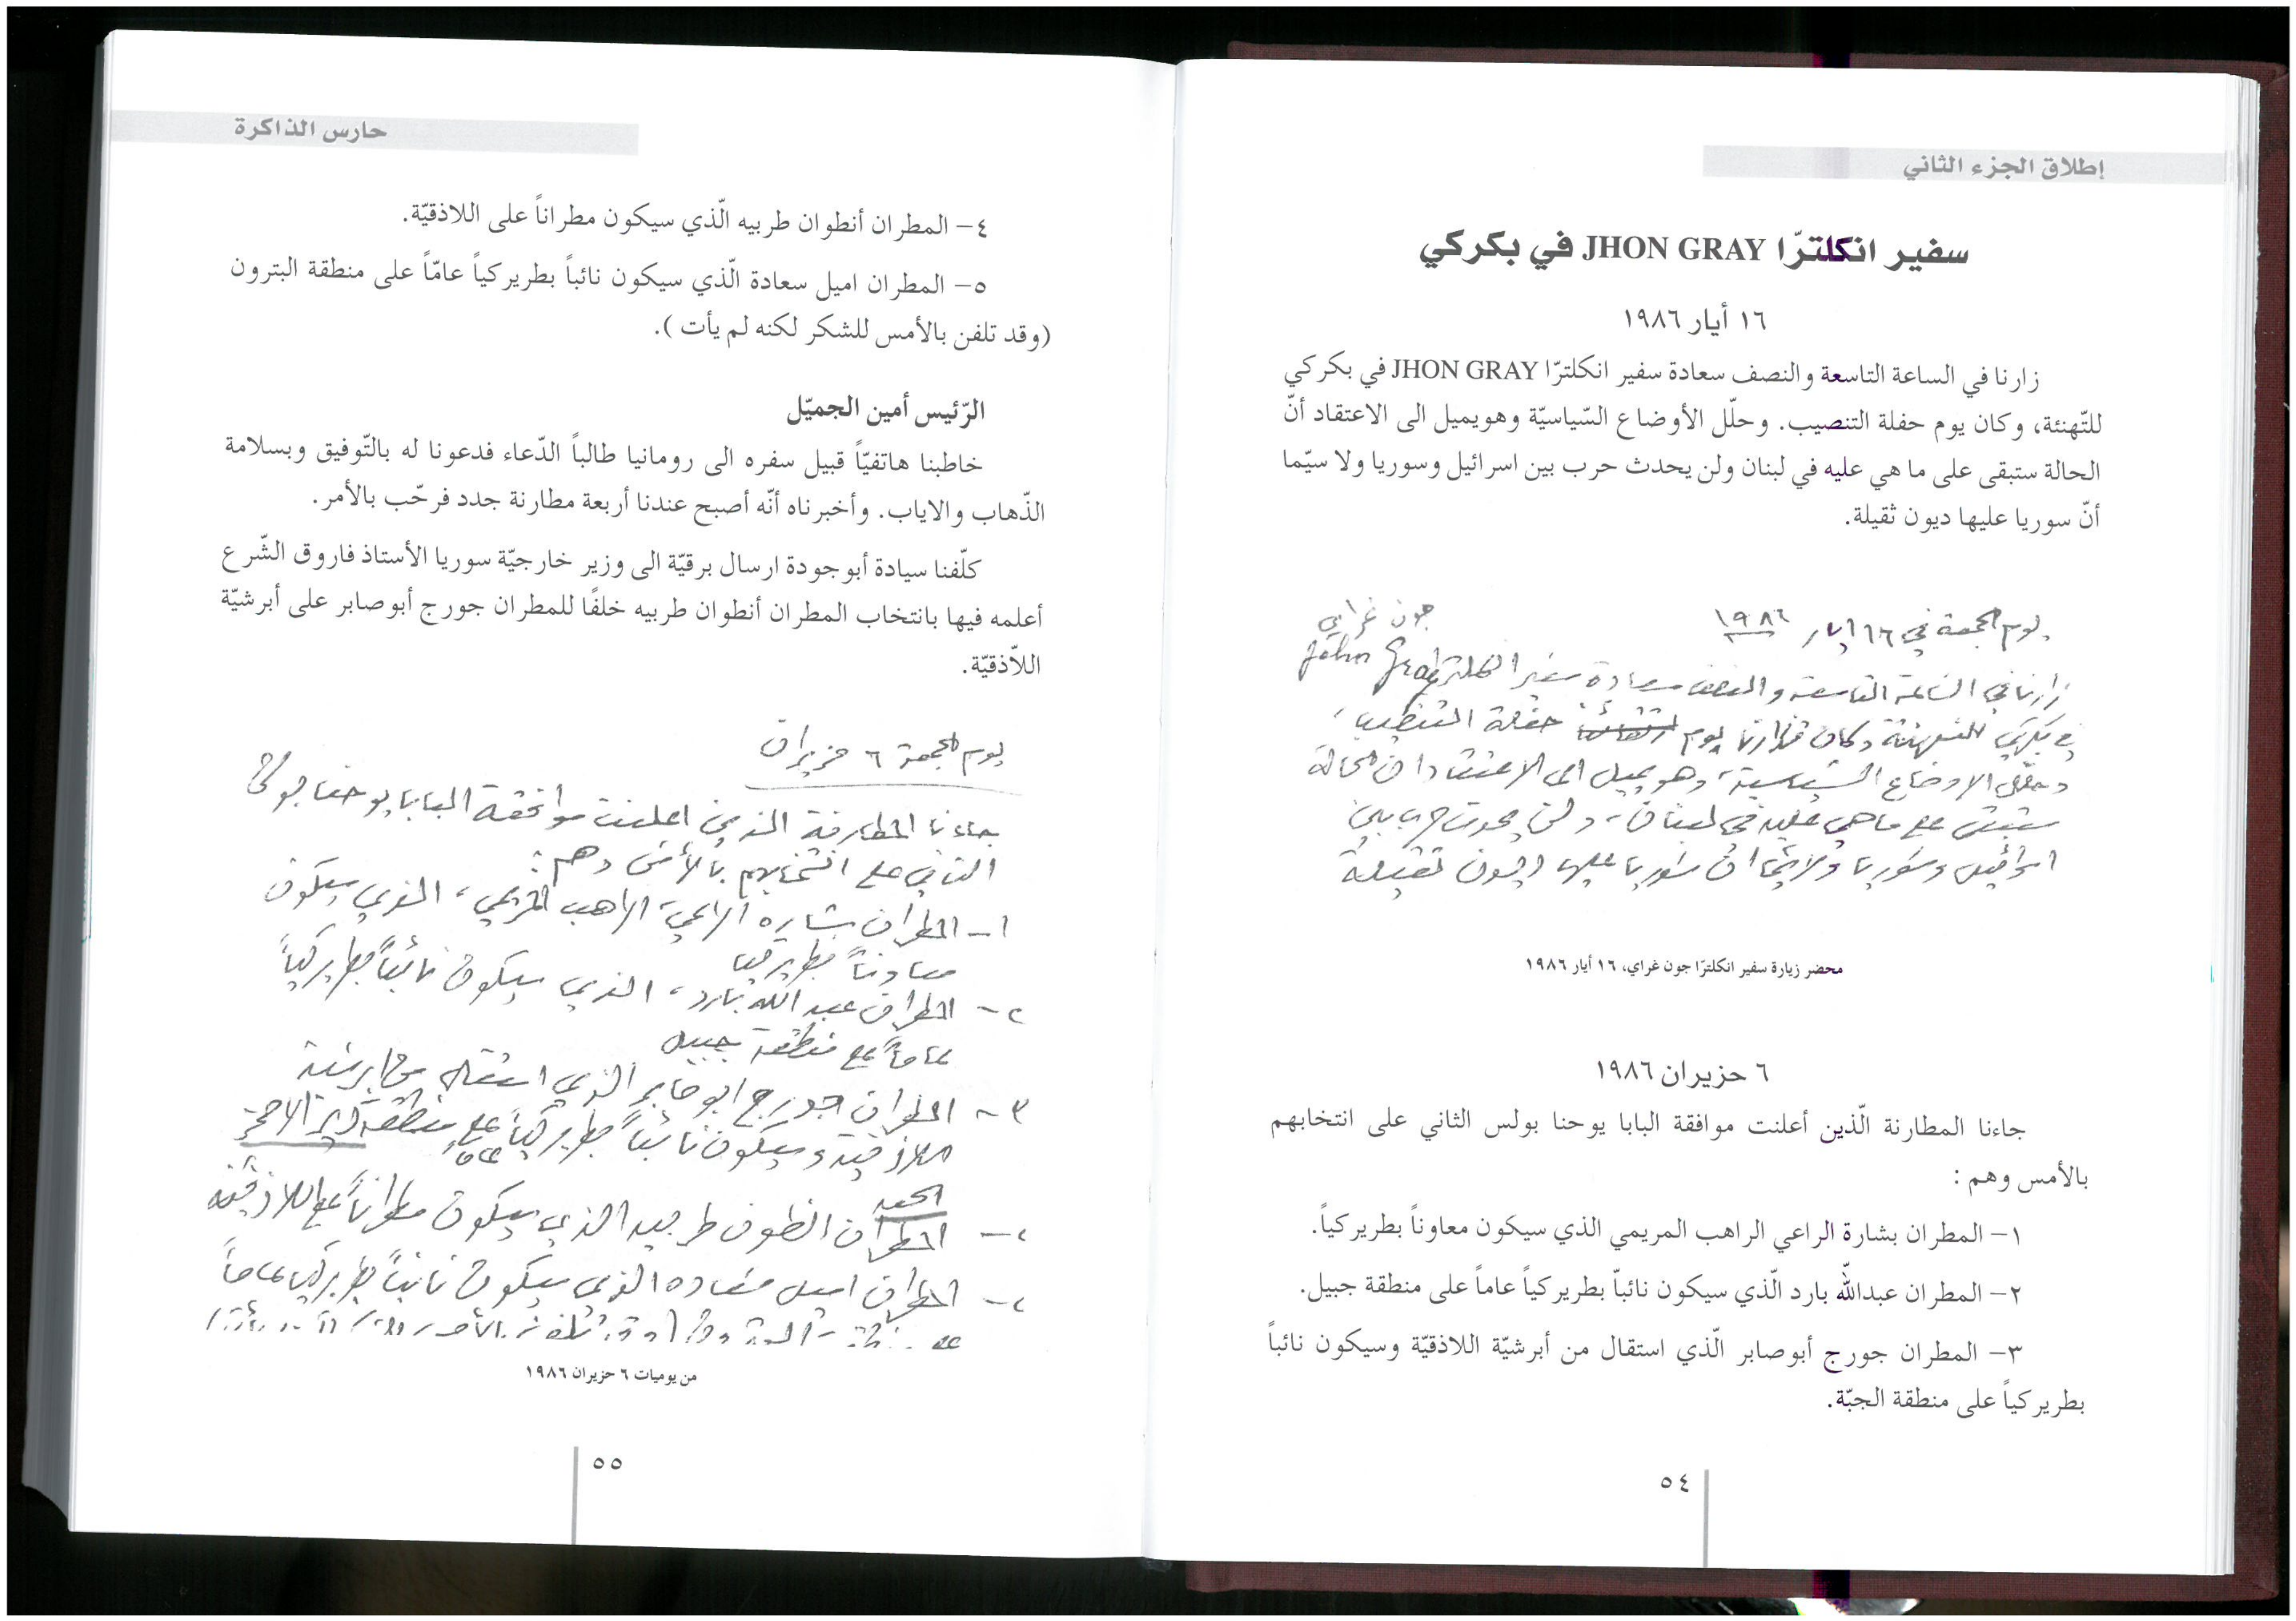 إطلاق الجزء الثاني
سفير انكلترّا JHON GRAY في بكركي
١٦ أيار ١٩٨٦
زارنا في الساعة التاسعة والنصف سعادة سفير انكلترّا JHON GRAY في بكركي
للتّهنئة، وكان يوم حفلة التنصيب. وحلّل الأوضاع السّياسيّة وهو يميل الى الاعتقاد أنّ
الحالة ستبقى على ما هي عليه في لبنان ولن يحدث حرب بين اسرائيل وسوريا ولا سيّما
أنّ سوريا عليها ديون ثقيلة.
يوم الجمعة في ١٦ ايار ١٩٨٦
جون غراي
زارنا في الساعة التاسعة والنصف سعادة سفير انكلترا John Gray
في بكركي للتهنئة وكان يوم حفلة التنصيب،
وحلّل الاوضاع السياسية، وهو يميل الى الاعتقاد ان الحالة
ستبقى على ما هي عليه في لبنان، ولن يحدث حرب بين
اسرائيل وسوريا ولا سيّما ان سوريا عليها ديون ثقيلة
محضر زيارة سفير انكلترّا جون غراي، ١٦ أيار ١٩٨٦
٦ حزيران ١٩٨٦
جاءنا المطارنة الّذين أعلنت موافقة البابا يوحنا بولس الثاني على انتخابهم
بالأمس وهم :
١- المطران بشارة الراعي الراهب المريمي الذي سيكون معاوناً بطريركياً.
٢- المطران عبدالله بارد الّذي سيكون نائباً بطريركياً عاماً على منطقة جبيل.
٣- المطران جورج أبو صابر الّذي استقال من أبرشيّة اللاذقيّة وسيكون نائباً
بطريركياً على منطقة الجبّة.
٥٤
حارس الذاكرة
٤- المطران أنطوان طربيه الّذي سيكون مطراناً على اللاذقيّة.
٥- المطران اميل سعادة الّذي سيكون نائباً بطريركياً عامّاً على منطقة البترون
(وقد تلفن بالأمس للشكر لكنه لم يأت ).
الرّئيس أمين الجميّل
خاطبنا هاتفيّاً قبيل سفره الى رومانيا طالباً الدّعاء فدعونا له بالتّوفيق وبسلامة
الذّهاب والاياب. وأخبرناه أنّه أصبح عندنا أربعة مطارنة جدد فرحّب بالأمر.
كلّفنا سيادة أبو جودة ارسال برقيّة الى وزير خارجيّة سوريا الأستاذ فاروق الشّرع
أعلمه فيها بانتخاب المطران أنطوان طربيه خلفًا للمطران جورج أبو صابر على أبرشيّة
اللاّذقيّة.
يوم الجمعة ٦ حزيران
جاءنا المطارنة الذين اعلنت موافقة البابا يوحنا بولس
الثاني على انتخابهم بالأمس وهم :
١- المطران بشاره الراعي، الراهب المريمي، الذي سيكون
معاوناً بطريركيا
٢- المطران عبد الله بارد، الذي سيكون نائباً بطريركياً
عاماً على منطقة جبيل
٣- المطران جورج ابو صابر الذي استقال من ابرشية
اللاذقية وسيكون نائباً بطريركياً عاماً على منطقة دير الاحمر
الجبه
٤- المطران انطون طربيه الذي سيكون مطراناً على اللاذقية
٤- المطران اميل سعاده الذي سيكون نائباً بطريركيا عاماً
من يوميات ٦ حزيران ١٩٨٦
٥٥